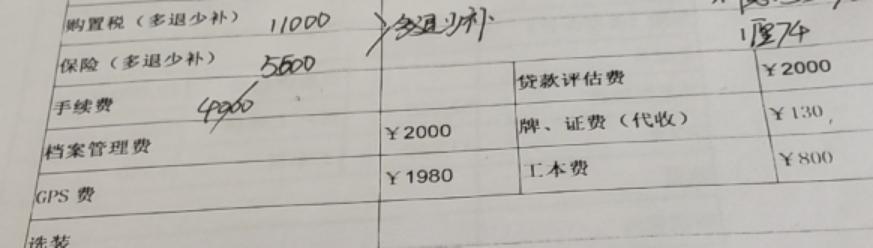 购置税（多退少补） 11000 多退少补
1厘74
保险（多退少补） 5500
手续费 4000 贷款评估费 ￥2000
档案管理费 ￥2000 牌、证费（代收） ￥130
GPS 费 ￥1980 工本费 ￥800
选装